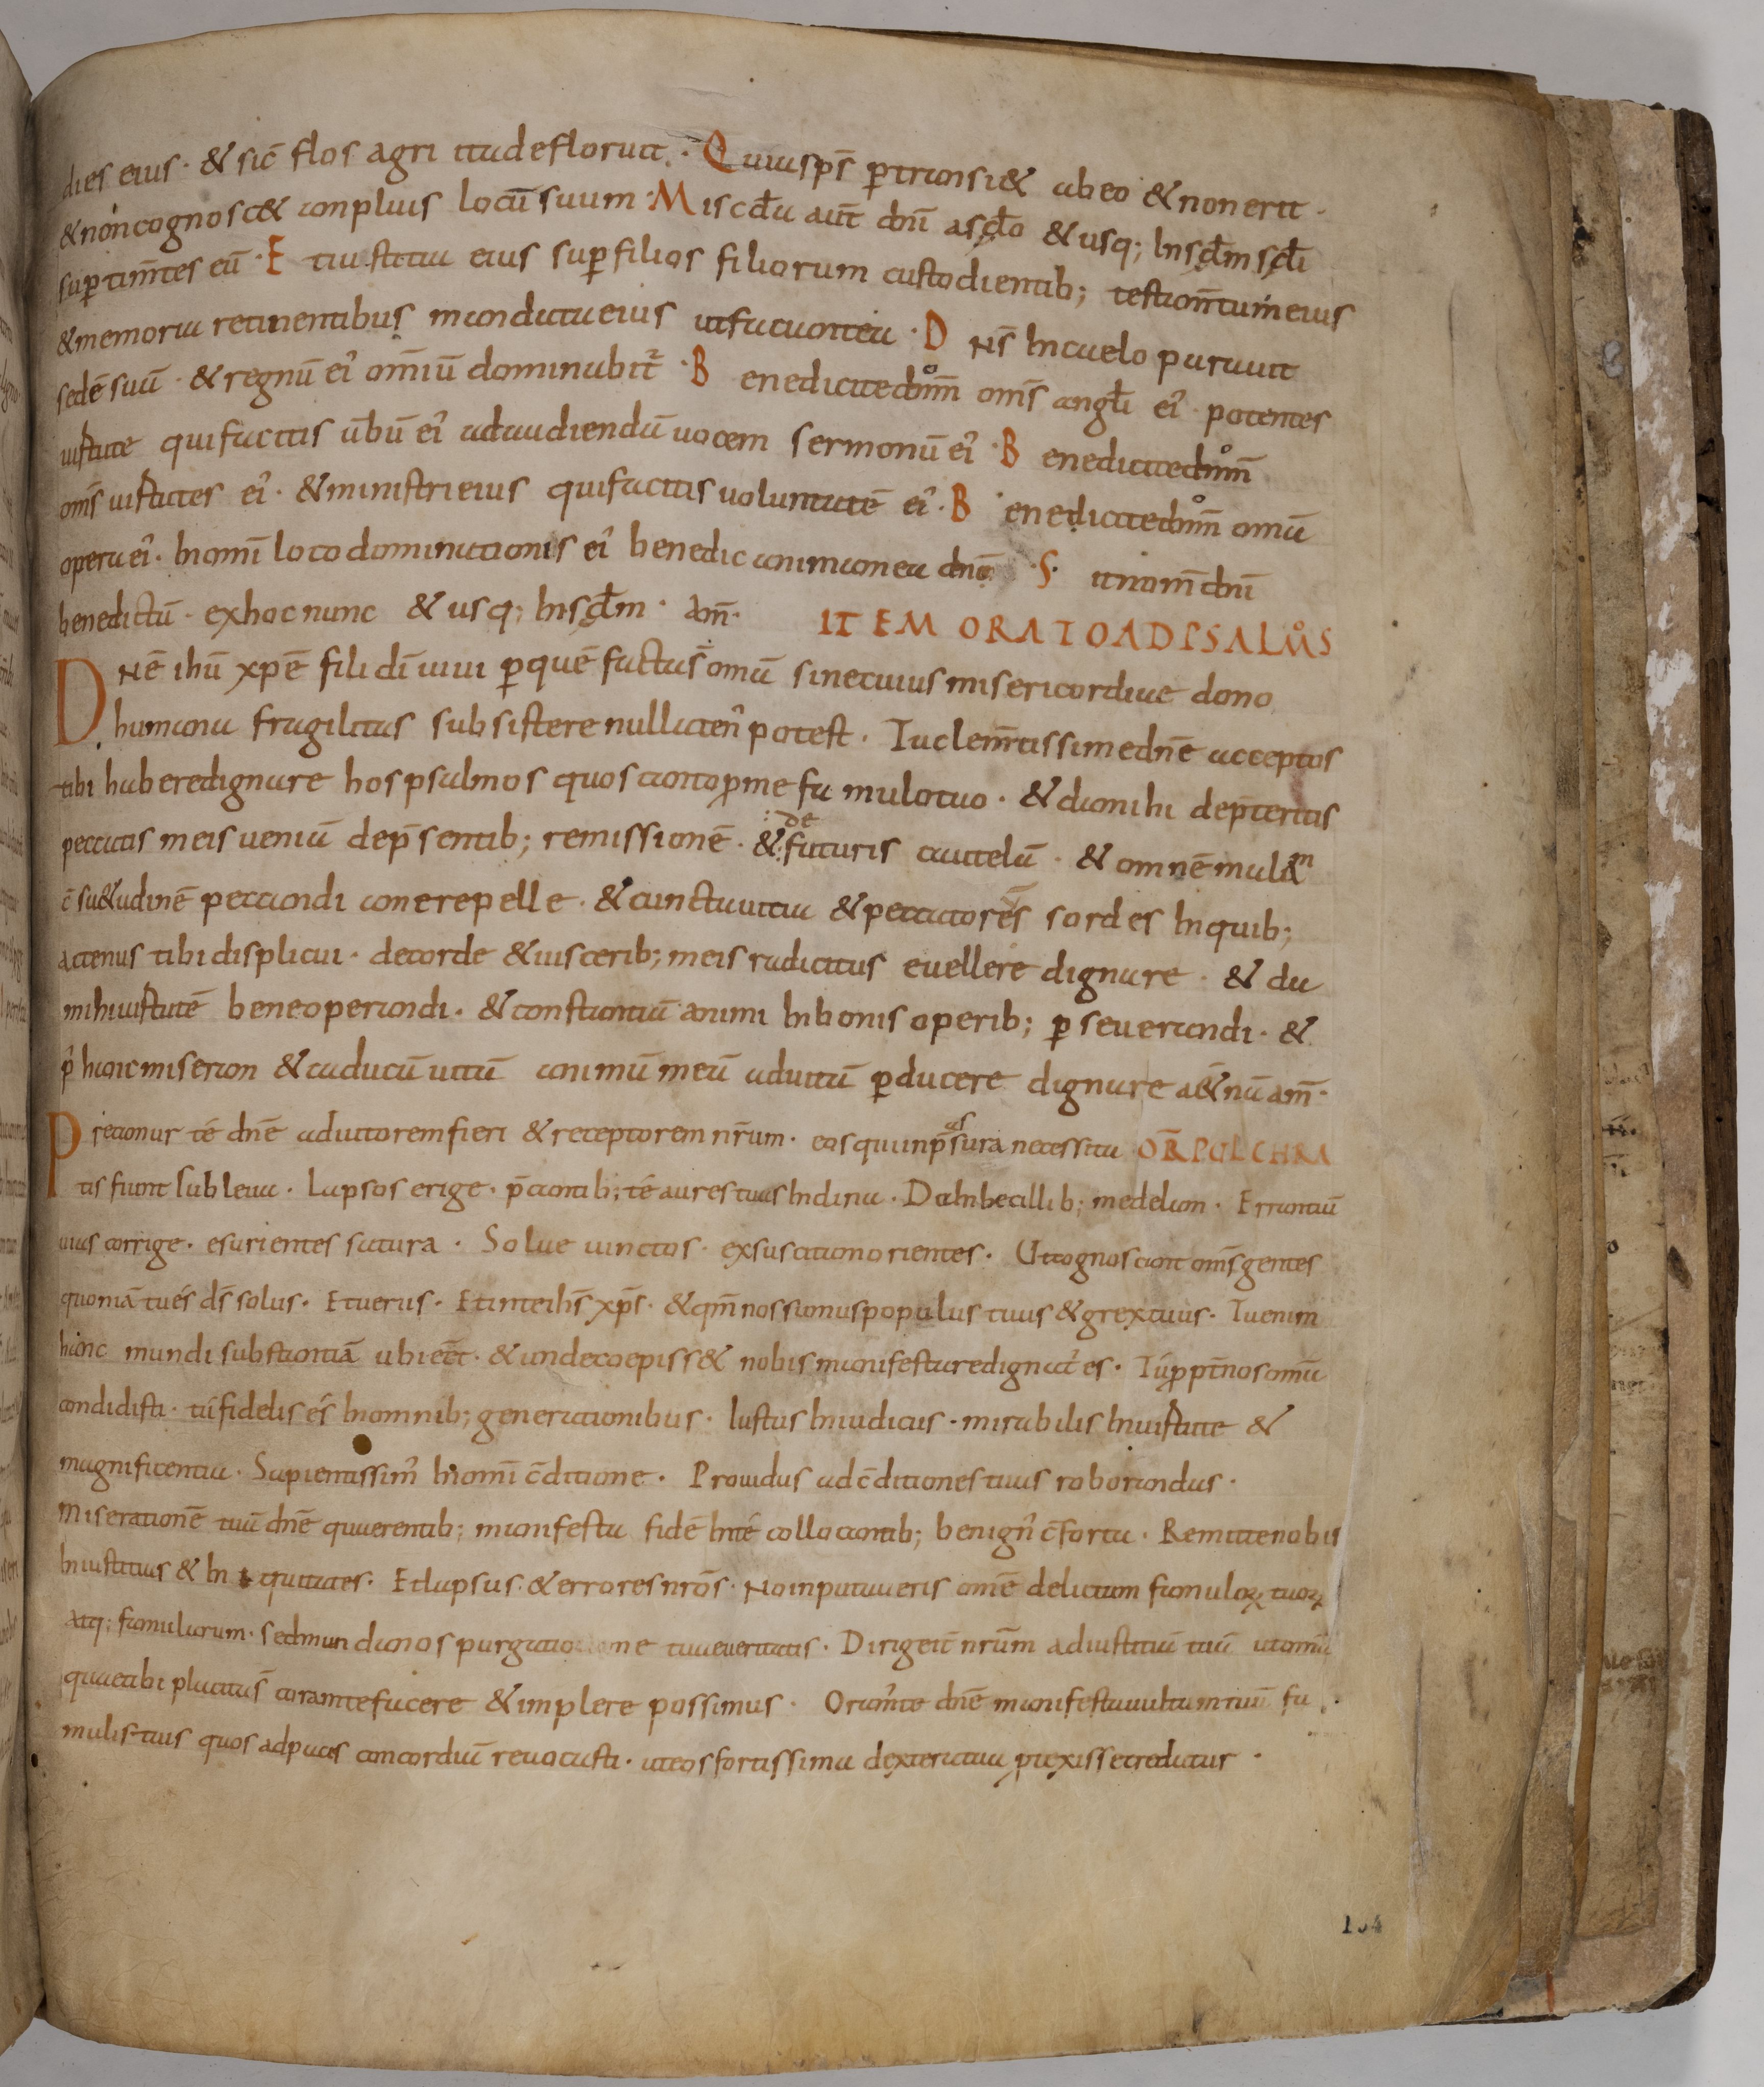 dies eius · & sic̄ flos agri ita deflorun̄t · Quia sp̄s ꝑtransi& ab eo & non erit ·
& non cognosc& amplius locū suum · Misc̄da aut̄ dn̄i a sc̄lo & usq; in sc̄lm sc̄li
suꝑ tim̄tes eū · E t iustitia eius suꝑ filios filiorum custodientib; testam̄tum eius
& memoria retinentibus mandata eius ut faciant ea · D n̄s in caelo parauit
sedē suū · & regnū ei᾽ om̄iū dominabit᷑ · B enedicite dn̄m om̄s angl̄i ei᾽ · potentes
uirtute qui facitis u̅bū ei᾽ ad audiendū uocem sermonū ei᾽ · B enedicite dn̄m
om̄s uirtutes ei᾽ · & ministri eius qui facitis uoluntatē ei᾽ · B enedicite dn̄m omia̅
opera ei᾽ · In om̄i loco dominationis ei᾽ benedic anima mea dn̄o · S · it nom̄ dn̄i
benedictū · ex hoc nunc & usq; in sc̄lm · am̄ · ITEM ORATIO AD PSALMOS
D nē ihū xp̄e fili dī uiui ꝑ quē facta s̄ omīa sine cuius misericordiae dono
humana fragilitas subsistere nullaten᾽ potest · Tu clem̄tissime dn̄e acceptos
tibi habere dignare hos psalmos quos canto ꝑ me famulo tuo · & da mihi de p̄teritis
peccatis meis ueniā de p̄sentib; remissionē · & de futuris cautelā · & omnē malam
c̄su&udinē peccandi a me repelle · & cuncta uitia & peccatores̄ sordes in quib;
actenus tibi displicui · de corde & uiscerib; meis radicitus euellere dignare · & da
mihi uirtutē bene operandi · & constantiā animi in bonis operib; ꝑseuerandi · &
p᾽ hanc miseram & caducā uitā animū meū ad uitā ꝑducere dignare a&nā am̄ ·
P recamur té dn̄e adiutorem fieri & receptorem nr̄um · eos qui in p̄ssura necessita OR̄ PULCHRA
tis sunt subleua · Lapsos erige · p̄cantib; té aures tuas inclina · Da inbecillib; medelam · Errantiū
uias corrige · esurientes satura · Solue uinctos · exsuscita morientes · Ut cognoscant om̄s gentes
quoniā tu és ds̄ solus · Et uerus · Et in te ihs̄ xp̄s · & qm̄ nos sumus populus tuus & grex tuus · Tu enim
hanc mundi substantiā ubi eēt · & unde coepiss& nobis manifestare dignat᾽ es · Tú ꝓpt̄ nos omīa
condidisti · tú fidelis és in omnib; generationibus · Iustus in iudiciis · mirabilis in uirtute &
magnificentia · Sapientissim᾽ in om̄i c̄ditione · Prouidus ad c̄ditiones tuas roborandas ·
Miserationē tuā dn̄e quaerentib; manifesta fidē in té collocantib; benign᾽ c̄forta · Remitte nobis
iniustitias & iniquitates · Et lapsus · & errores nr̄os · No inputaueris om̄e delictum famuloꝝ tuoꝝ
atq; famularum · sed munda nos purgatione tuae ueritatis · Dirige it̄ nr̄um ad iustitiā tuā ut omīa
quae tibi placita s̄ coram te facere & implere possimus · Oram᾽ te dn̄e manifesta uultum tuū fa
mulis tuis quos ad pacis concordiā reuocasti · ut eos fortissima dextera tua p̄texisse credatur ·
134